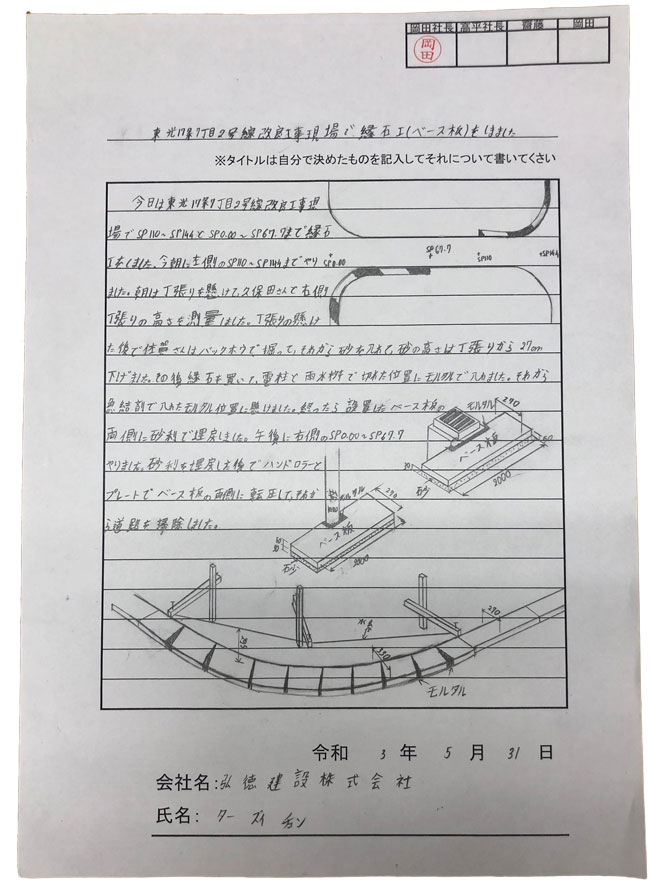 岡田社長 高平社長 齋藤 岡田
岡田
東光17条7丁目2号線改良工事現場で縁石工(ベース板)をしました
※タイトルは自分で決めたものを記入してそれについて書いてください
今日は東光17条7丁目2号線改良工事現
場でSP110~SP144とSP0.00~SP67.7まで縁石
工をしました。今朝に左側のSP110~SP144までやり
ました。朝は丁張りを懸けて、久保田さんて右側
丁張りの高さを測量しました。丁張りの懸け
た後で佐賀さんはバックホウで掘って、それから砂を入れて、砂の高さは丁張りから27cm
下げました。その後縁石を置いて、電柱と雨水桝で切れた位置にモルタルで入れました。それから
急結剤で入れたモルタル位置に懸けました。終ったら設置したベース板の
両側に砂利で埋戻しました。午後に右側のSP0.00~SP67.7
やりました。砂利を埋戻した後でハンドロラーと
プレートでベース板の両側に転圧して、それか
ら道路を掃除しました。
SP67.7
SP0.00
SP110
SP144
モルタル
290
ベース板
60
砂
2000
モルタル
290
ベース板
砂
2000
290
モルタル
令和 3 年 5 月 31 日
会社名:弘徳建設株式会社
氏名: ターズイ チャン